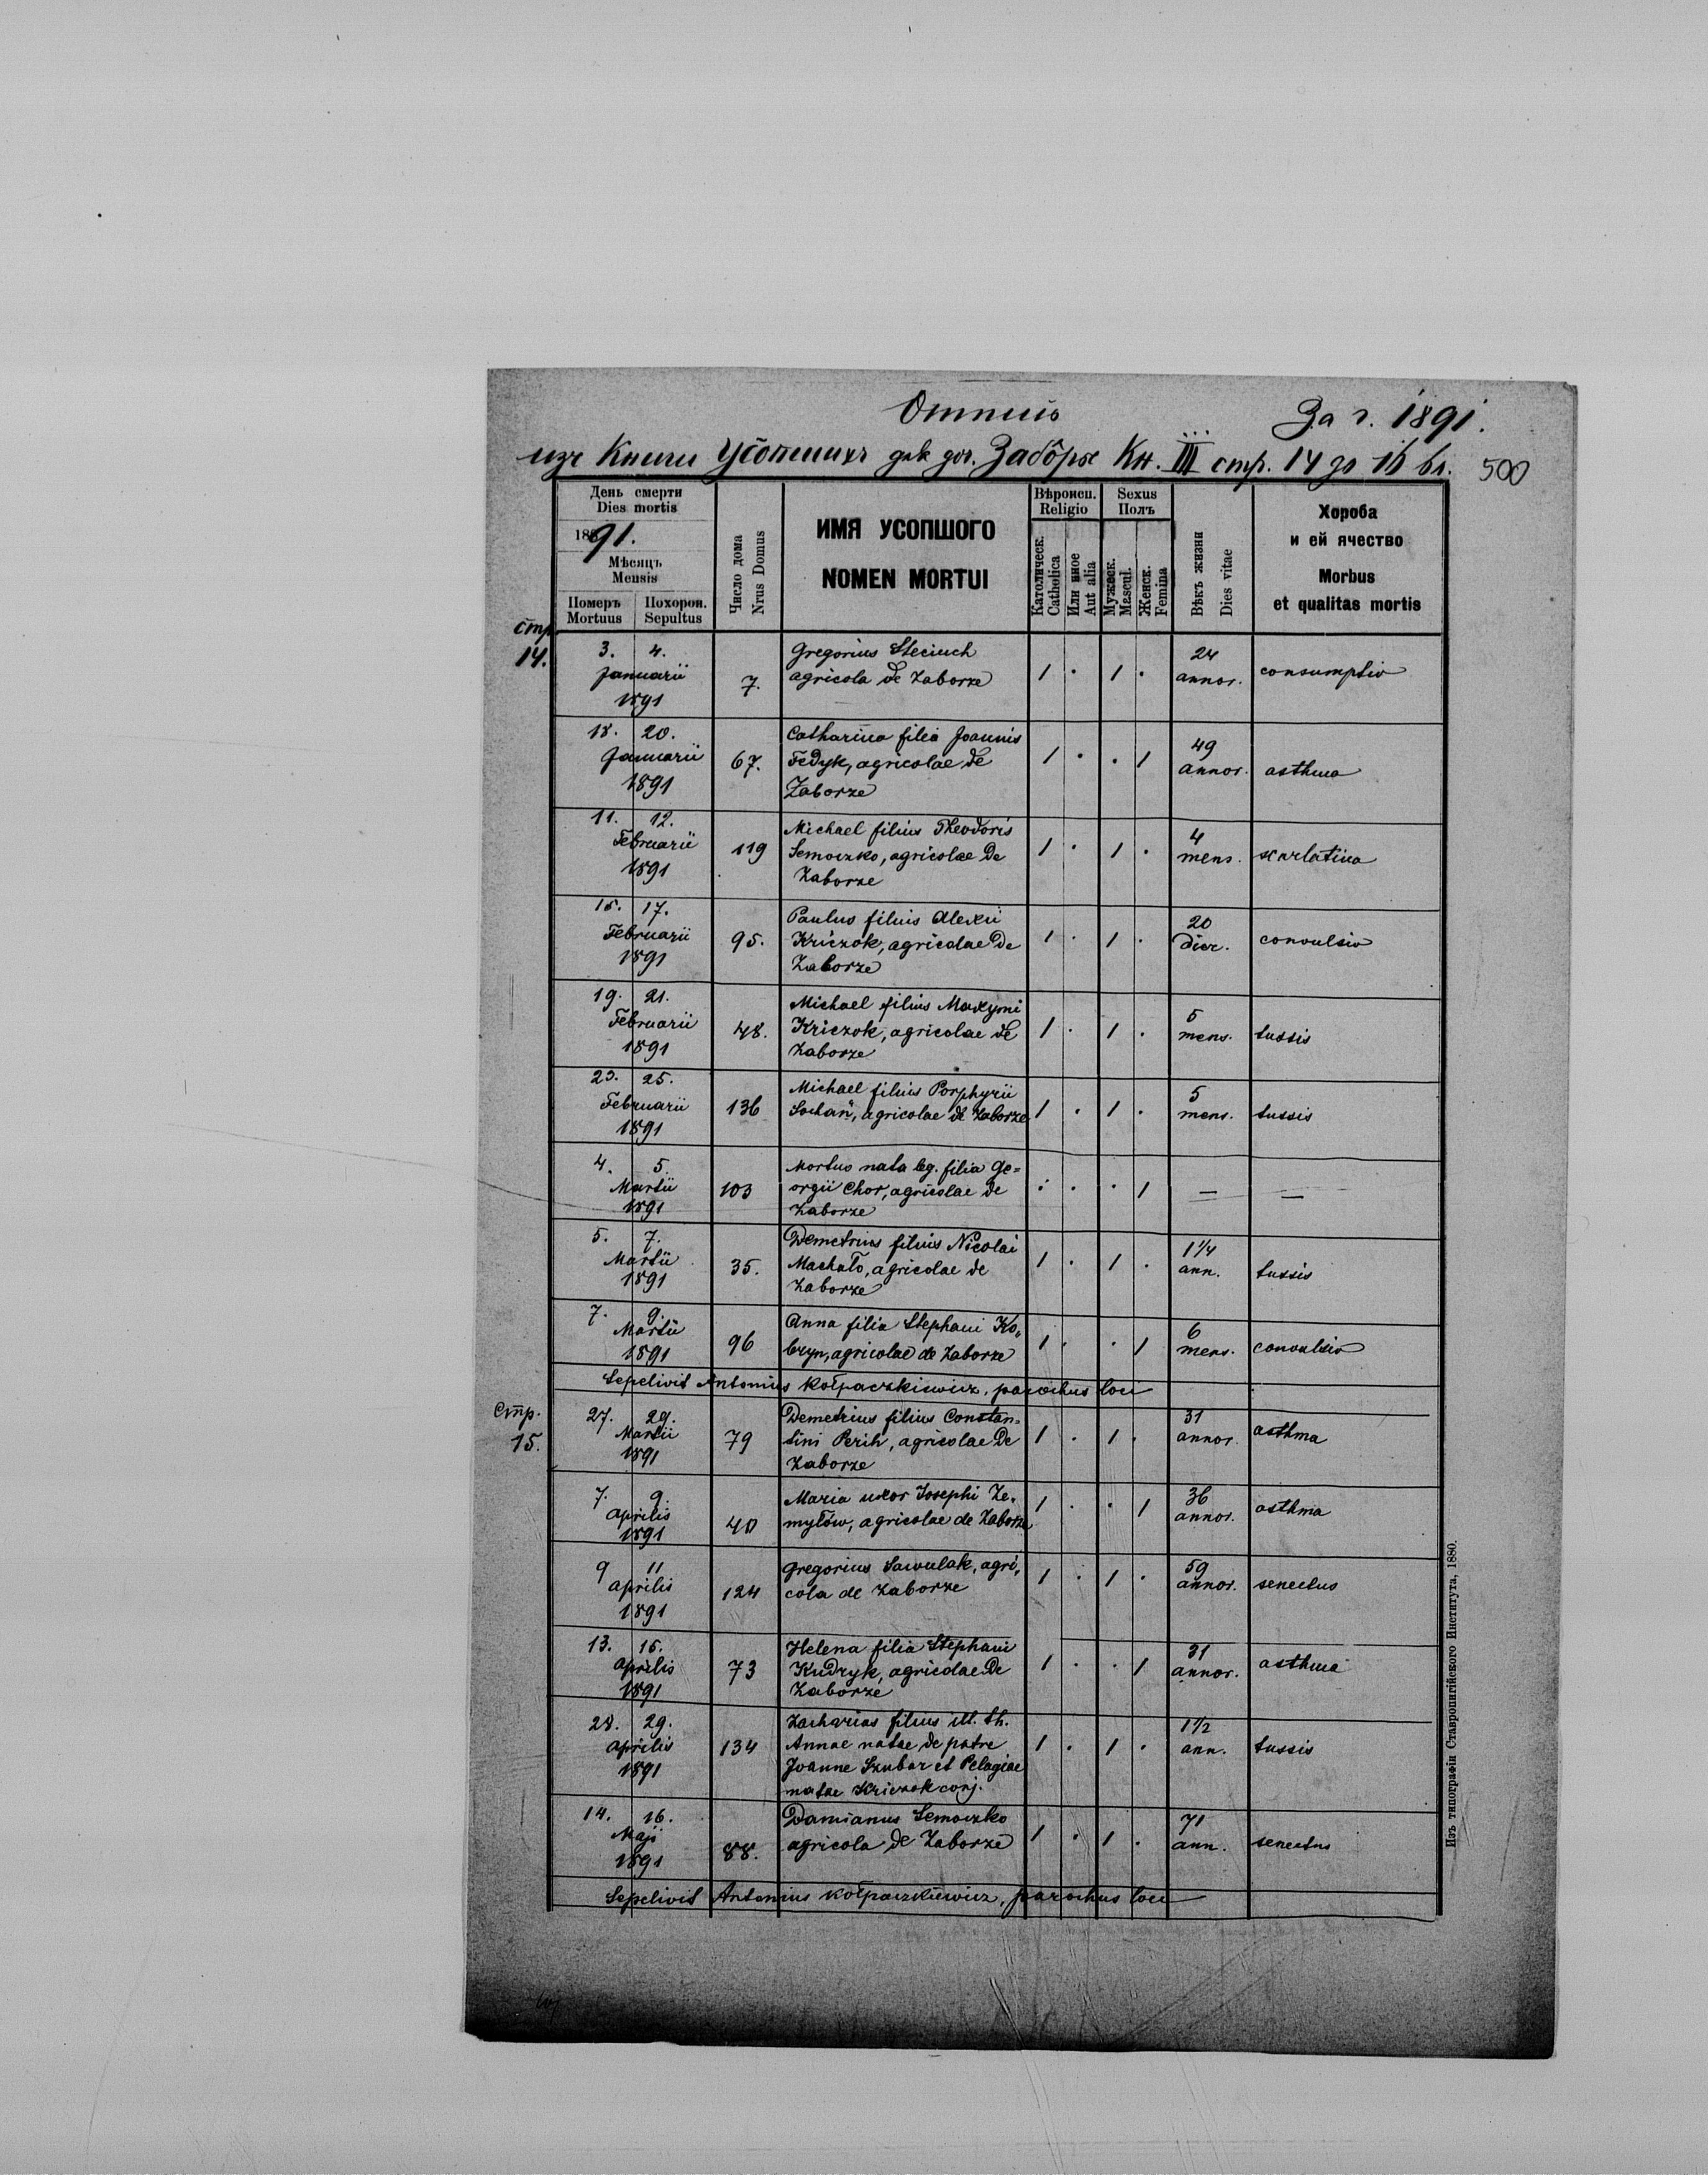 Отпись За г. 1891.
изъ Книги Усопшихъ для дог. Забôрье Кн. III стр. 14 до 16 вл. 500
День смерти
Dies mortis
1891.
Мѣсяцъ
Mensis
Померъ Похорон.
Mortuus Sepultus
Число дома
Nrus Domus
ИМЯ УСОПШОГО
NOMEN MORTUI
Вѣроисп.
Religio
Католическ.
Catholica
Или иное
Aut alia
Sexus
Полъ
Мужеск.
Mascul.
Женск.
Femina
Вѣкъ жизни
Dies vitae
Хороба
и ей ячество
Morbus
et qualitas mortis
стр.
14.
3. 4. Gregorius Steciuch 24
Januarii 7. agricola de Zaborze 1 . 1 . annor. consumptio
1891
18. 20. Catharina filia Joannis 49
Januarii 67. Fedyk, agricolae de 1 . . 1 annor. asthma
1891 Zaborze
11. 12. Michael filius Theodoris 4
Februarii 119 Semoczko, agricolae de 1 . 1 . mens. scarlatina
1891 Zaborze
15. 17. Paulus filius Alexii 20
Februarii 95. Kriczok, agricolae de 1 . 1 . dier. convulsio
1891 Zaborze
19. 21. Michael filius Maxymi 5
Februarii 48. Kriczok, agricolae de 1 . 1 . mens. tussis
1891 Zaborze
23. 25. Michael filius Porphyrii 5
Februarii 136 Sochań, agricolae de Zaborze 1 . 1 . mens. tussis
1891
4. 5. Mortuo nata leg. filia Ge=
Martii 103 orgii Chor, agricolae de . . . 1 — —
1891 Zaborze
5. 7. Demetrius filius Nicolai 1 1/4
Martii 35. Machało, agricolae de 1 . 1 . ann. tussis
1891 Zaborze
7. 9. Anna filia Stephani Ko= 6
Martii 96 bryn, agricolae de Zaborze 1 . . 1 mens. convulsio
1891
Sepelivit Antonius Kołpaczkiewicz, parochus loci
Стр.
15.
27. 29. Demetrius filius Constan= 31
Martii 79 tini Perih, agricolae de 1 . 1 . annor. asthma
1891 Zaborze
7. 9. Maria uxor Josephi Ze= 36
Aprilis 40 myłów, agricolae de Zaborze 1 . . 1 annor. asthma
1891
9 11 Gregorius Sawulak, agri= 59
Aprilis 124 cola de Zaborze 1 . 1 . annor. senectus
1891
13. 15. Helena filia Stephani 31
Aprilis 73 Kudryk, agricolae de 1 . . 1 annor. asthma
1891 Zaborze
28. 29. Zacharias filius ill. th. 1 1/2
Aprilis 134 Annae natae de patre 1 . 1 . ann. tussis
1891 Joanne Szubar et Pelagiae
natae Kriczok conj.
14. 16. Damianus Semoczko 71
Maji 88. agricola de Zaborze 1 . 1 . ann. senectus
1891
Sepelivit Antonius Kołpaczkiewicz, parochus loci
Изъ типографіи Ставропигійского Института, 1880.